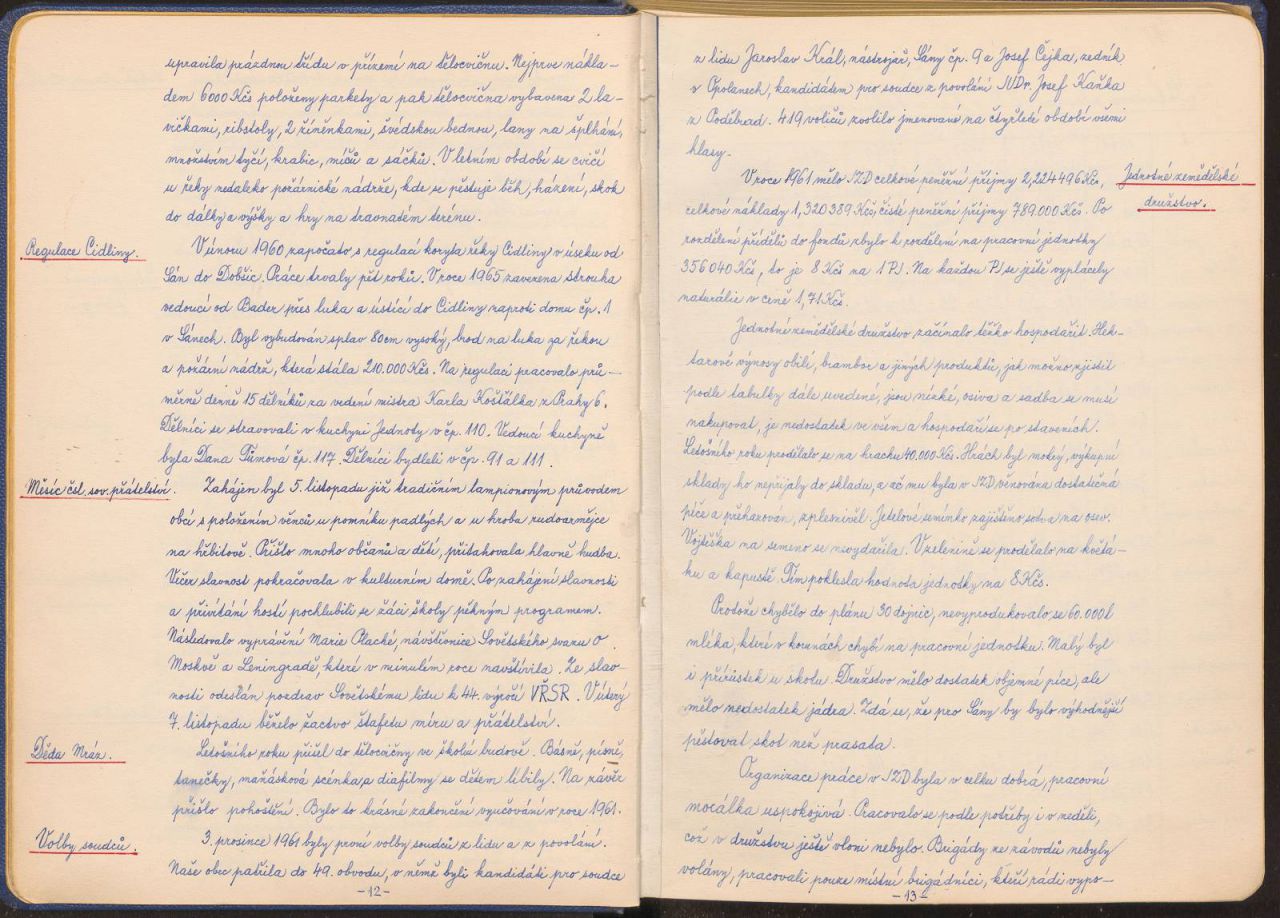 upravila prázdnou třídu v přízemí na tělocvičnu. Nejprve nákla-
dem 6000 Kčs položeny parkety a pak tělocvična vybavena 2 la-
vičkami, ribstoly, 2 žíněnkami, švédskou bednou, lany na šplhání,
množstvím tyčí, krabic, míčů a sáčků. V letním období se cvičí
u řeky nedaleko požárnické nádrže, kde se pěstuje běh, házení, skok
do dálky a výšky a hry na travnatém terénu.
Regulace Cidliny.
V únoru 1960 započato s regulací koryta řeky Cidliny v úseku od
Sán do Dobšic. Práce trvaly pět roků. V roce 1965 zavezena strouha
vedoucí od Bader přes luka a ústící do Cidliny naproti domu čp. 1
v Sánech. Byl vybudován splav 80cm vysoký, brod na luka za řekou
a požární nádrž, která stála 210.000 Kčs. Na regulaci pracovalo prů-
měrně denně 15 dělníků za vedení mistra Karla Košťálka z Prahy 6.
Dělníci se stravovali v kuchyni Jednoty v čp. 110. Vedoucí kuchyně
byla Dana Tůmová čp. 117. Dělníci bydleli v čp. 91 a 111.
Měsíc čsl. sov. přátelství.
Zahájen byl 5. listopadu již tradičním lampionovým průvodem
obcí s položením věnců u pomníku padlých a u hrobu rudoarmějce
na hřbitově. Přišlo mnoho občanů a dětí, přitahovala hlavně hudba.
Večer slavnost pokračovala v kulturním domě. Po zahájení slavnosti
a přivítání hostí pochlubili se žáci školy pěkným programem.
Následovalo vyprávění Marie Placké, návštěvnice Sovětského svazu o
Moskvě a Leningradě, které v minulém roce navštívila. Ze slav-
nosti odeslán pozdrav Sovětskému lidu k 44. výročí VŘSR. V úterý
7. listopadu běželo žactvo štafetu míru a přátelství.
Děda Mráz.
Letošního roku přišel do tělocvičny ve školní budově. Básně, písně,
tanečky, maňásková scénka, a diafilmy se dětem líbily. Na závěr
přišlo pohoštění. Bylo to krásné zakončení vyučování v roce 1961.
Volby soudců.
3. prosince 1961 byly první volby soudců z lidu a z povolání.
Naše obec patřila do 49. obvodu, v němž byli kandidáti pro soudce
-12-
z lidu Jaroslav Král, nástrojař, Sány čp. 9 a Josef Čejka, zedník
v Opolanech, kandidátem pro soudce z povolání JUDr. Josef Kaňka
z Poděbrad. 419 voličů zvolilo jmenované na čtyřleté období všemi
hlasy.
Jednotné zemědělské
družstvo.
V roce 1961 mělo JZD celkové peněžní příjmy 2,224 496 Kčs,
celkové náklady 1,320 389 Kčs, čisté peněžní příjmy 789.000 Kčs. Po
rozdělení přídělů do fondů zbylo k rozdělení na pracovní jednotky
356 040 Kčs, to je 8 Kčs na 1 PJ. Na každou PJ se ještě vyplácely
naturálie v ceně 1,71 Kčs.
Jednotní zemědělské družstvo začínalo těžko hospodařit. Hek-
tarové výnosy obilí, brambor a jiných produktů, jak možno zjistit
podle tabulky dále uvedené, jsou nízké, osiva a sadba se musí
nakupovat, je nedostatek ve všem a hospodaří se po staveních.
Letošního roku prodělalo se na hrachu 40.000 Kčs. Hrách byl mokrý, výkupní
sklady ho nepřijaly do skladu, a ač mu byla v JZD věnována dostatečná
péče a přehazován, zplesnivěl. Jetelové semínko zajištěno sotva na osev.
Vojtěška na semeno se nevydařila. V zelenině se prodělalo na květá-
ku a kapustě. Tím poklesla hodnota jednotky na 8 Kčs.
Protože chybělo do plánu 30 dojnic, nevyprodukovalo se 60.000 l
mléka, které v korunách chybí na pracovní jednotku. Malý byl
i přírůstek u skotu. Družstvo mělo dostatek objemné píce, ale
mělo nedostatek jádra. Zdá se, že pro Sány by bylo výhodnější
pěstovat skot než prasata.
Organizace práce v JZD byla v celku dobrá, pracovní
morálka uspokojivá. Pracovalo se podle potřeby i v neděli,
což v družstvu ještě vloni nebylo. Brigády ze závodů nebyly
volány, pracovali pouze místní brigádníci, kteří rádi vypo-
-13-